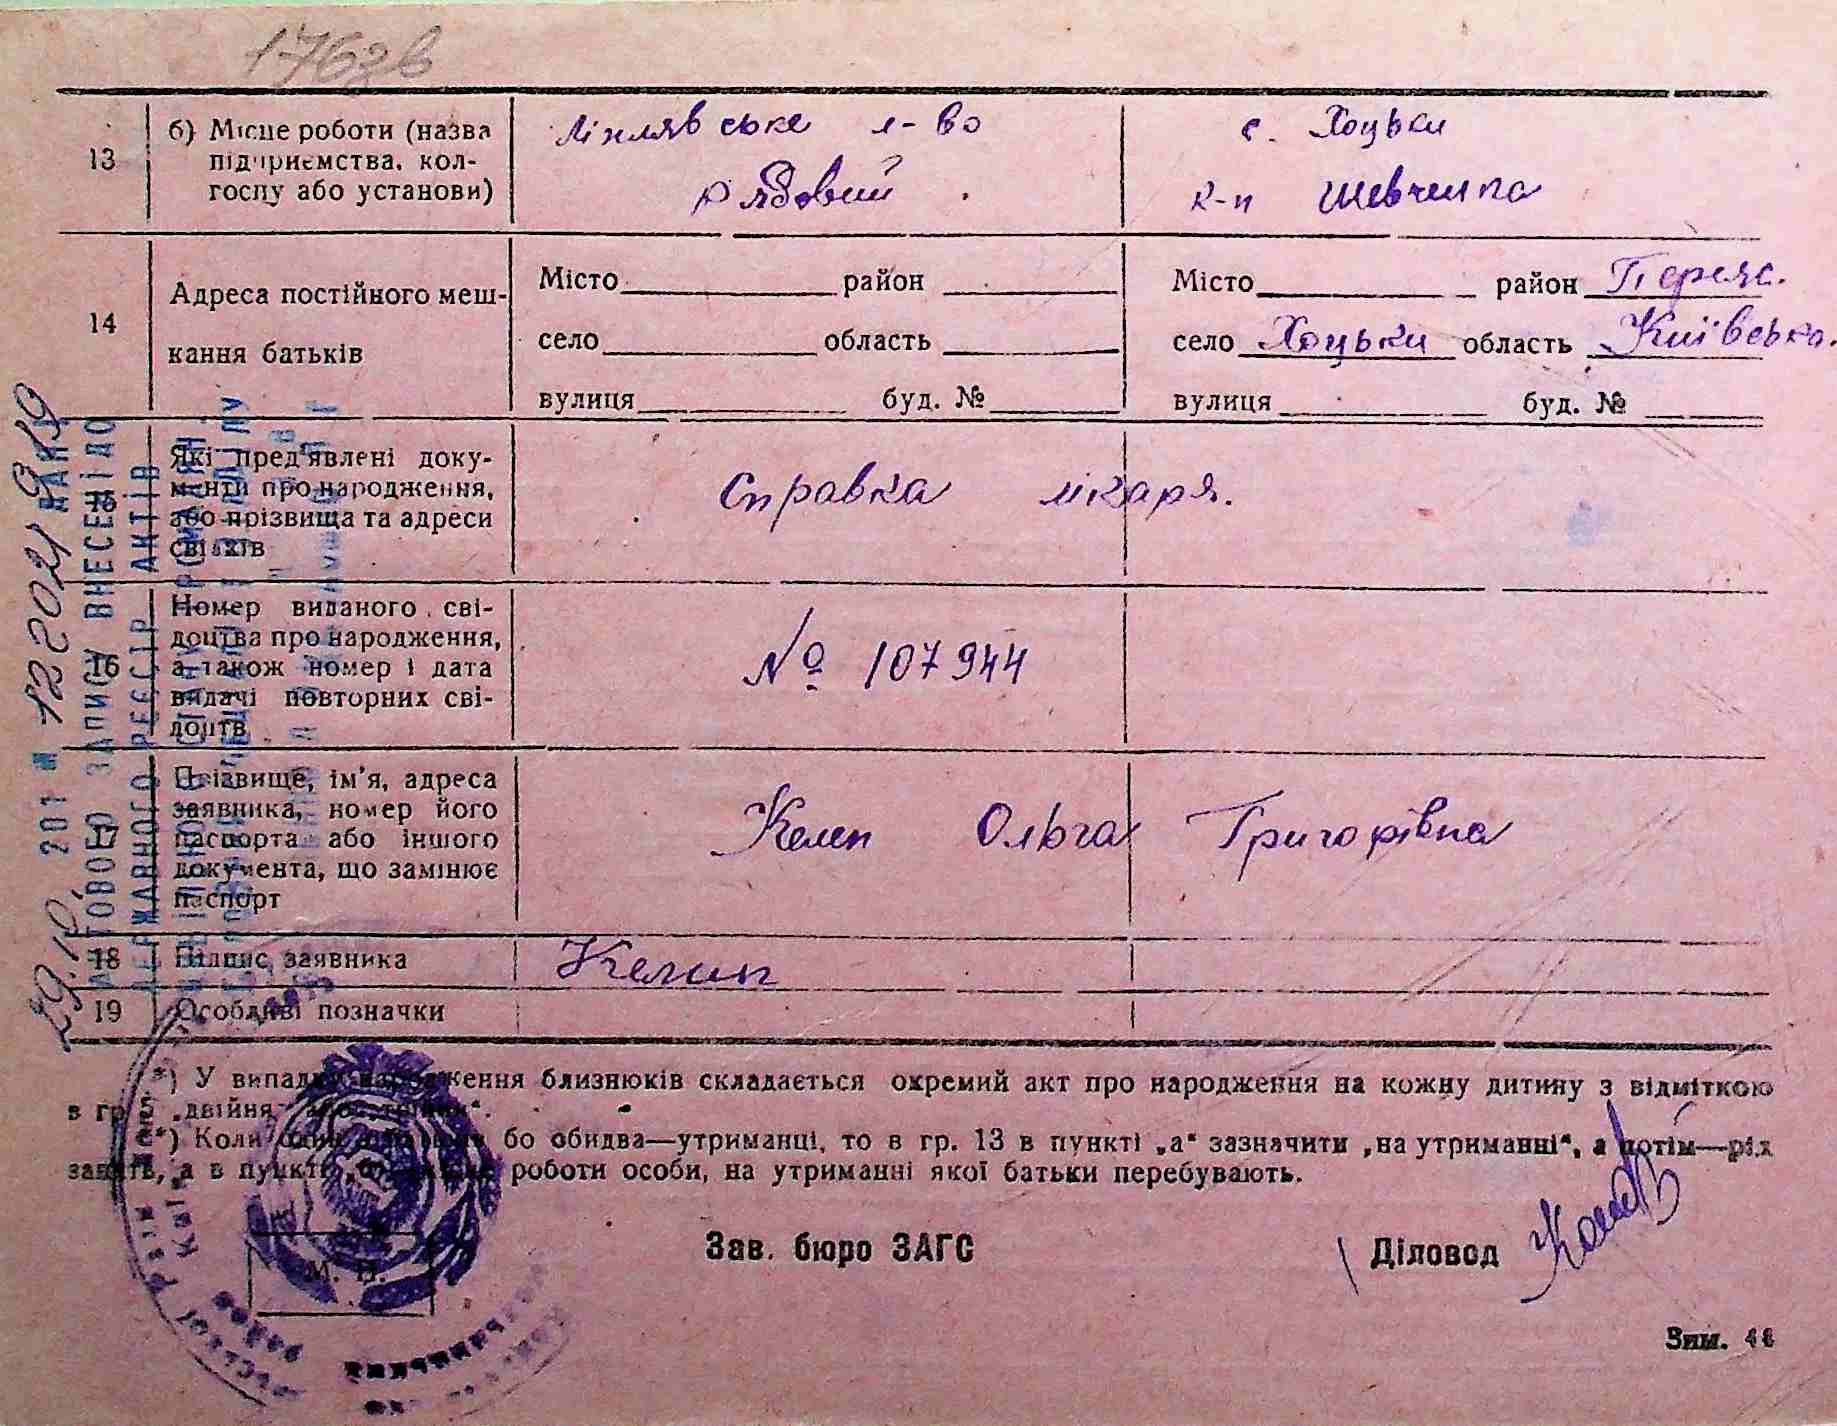 13
б) Місце роботи (назва
підприємства, кол-
госпу або установи)
Ліплявське л-во
рядовий
с. Хоцьки
к-п Шевченка
14
Адреса постійного меш-
кання батьків
Місто район
село область
вулиця буд. №
Місто район Переяс.
село Хоцьки область Київська.
вулиця буд. №
15
Які пред'явлені доку-
менти про народження,
або прізвища та адреси
свідків
Справка лікаря.
16
Номер виданого сві-
доцтва про народження,
а також номер і дата
видачі повторних сві-
доцтв
№ 107944
17
Прізвище, ім'я, адреса
заявника, номер його
паспорта або іншого
документа, що замінює
паспорт
Келеп Ольга Григорівна
18
Підпис заявника
19
Особливі позначки
*) У випадку народження близнюків складається окремий акт про народження на кожну дитину з відміткою
в гр. 5 „двійня“ або „трійня“.
**) Коли один а бо обидва—утриманці, то в гр. 13 в пункті „а“ зазначити „на утриманні“, а потім—рід
занять, а в пункті роботи особи, на утриманні якої батьки перебувають.
М. П.
Зав. бюро ЗАГС
Діловод
29.10. 201
АКТОВОГО ЗАПИСУ ВНЕСЕНІ ДО
ДЕРЖАВНОГО РЕЄСТР АКТІВ